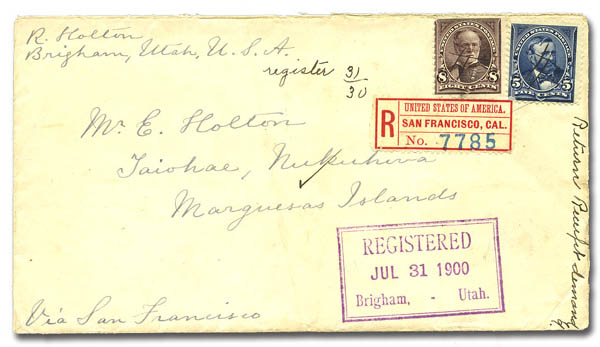 R. Holton
Brigham, Utah, U.S.A.
register 31
30
8 8
EIGHT CENTS
UNITED STATES OF AMERICA.
R SAN FRANCISCO, CAL.
No. 7785
Mr. E. Holton
Taiohae, Nukuhiva
Marquesas Islands
REGISTERED
JUL 31 1900
Brigham, - Utah.
Via San Francisco
Return Receipt demand